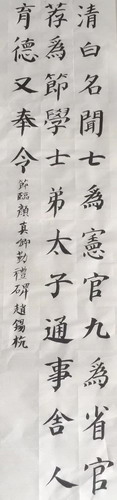 清白名聞七爲憲官九爲省官
荐爲節學士弟太子通事舍人
育德又奉令
節臨顏真卿勤禮碑趙錫杭